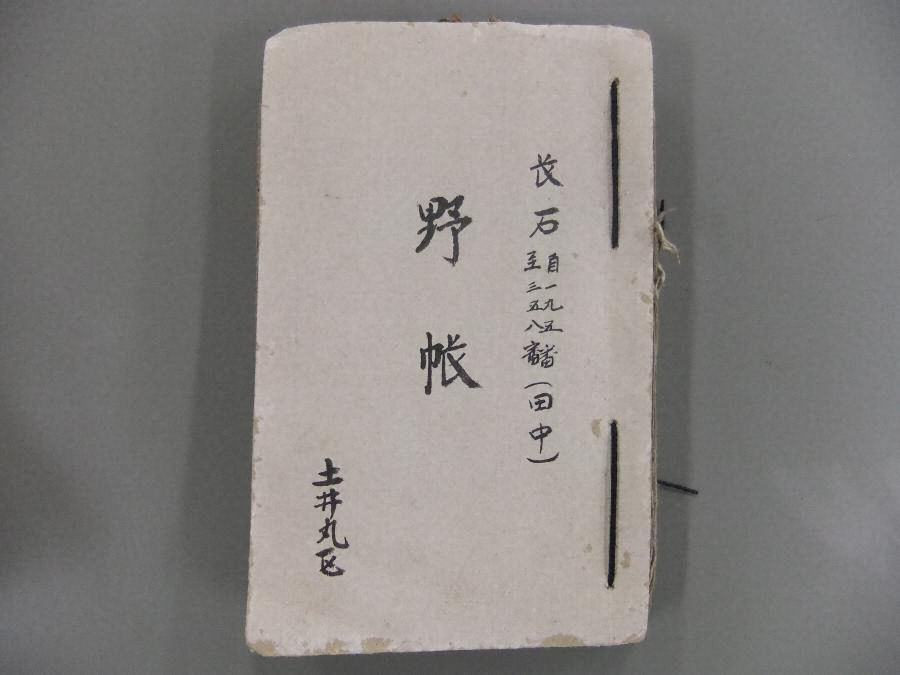 長石 自一九五番
至三五八番 (田中)
野帳
土井丸区